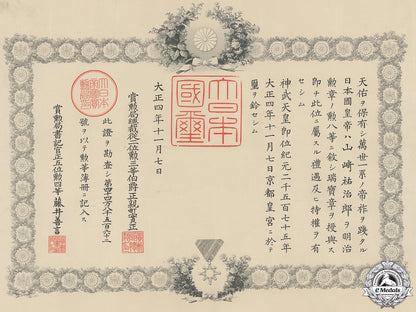 天佑ヲ保有シ萬世一系ノ帝祚ヲ踐タル
日本國皇帝ハ山﨑祐治郎ヲ明治
勲章ノ勲八等ニ敍シ瑞寶章ヲ授與ス
即チ此位ニ屬スル禮遇及ヒ特權ヲ有
セシム
神武天皇即位紀元二千五百七十五年
大正四年十一月七日京都皇宮ニ於テ
璽ヲ鈐セシム
大日本
國璽
大正四年十一月七日
賞勲局總裁從二位勲三等伯爵正親町實正
此證ヲ勘査シ第四十四万八千五百六十二
號ヲ以テ勲等簿册ニ記入ス
賞勲局書記官正五位勲四等藤井善言
eMedals